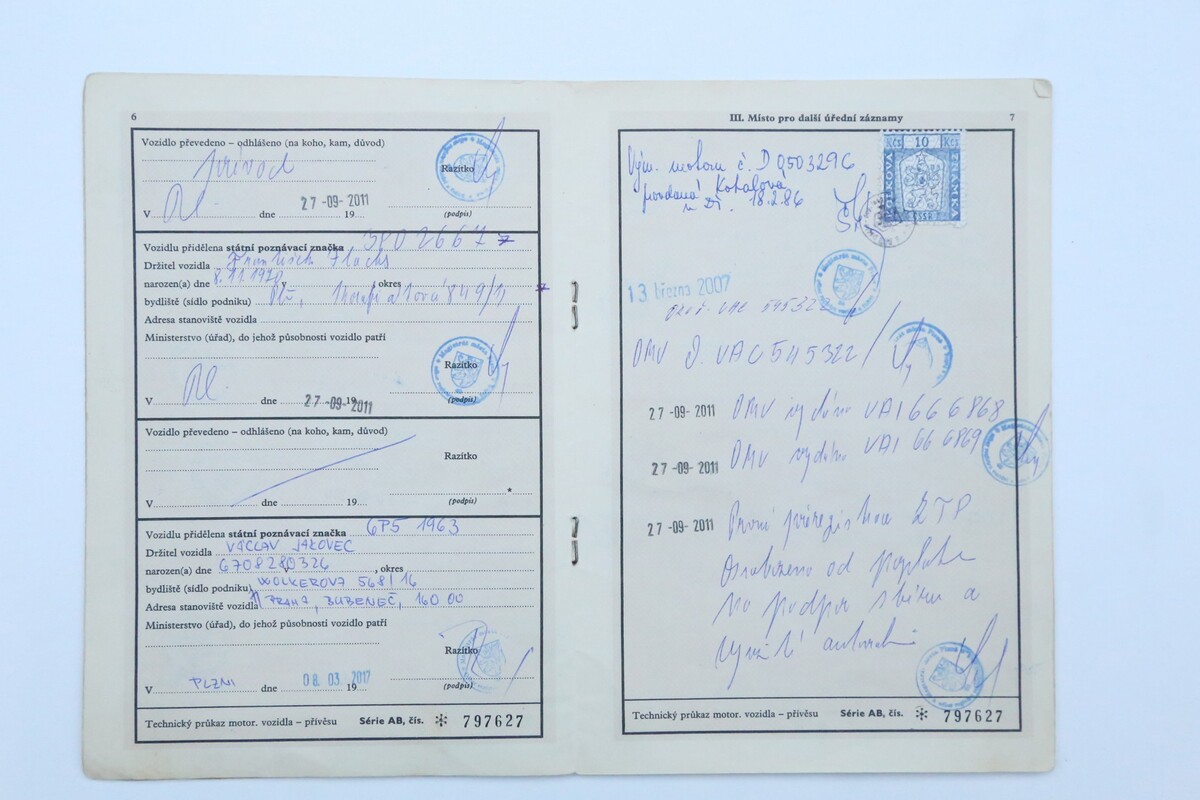 6
Vozidlo převedeno – odhlášeno (na koho, kam, důvod)
převod
Razítko
V Pl. dne 27 -09- 2011 19
(podpis)
Vozidlu přidělena státní poznávací značka 3P0 2667
Držitel vozidla František
narozen(a) dne 8.11.19 v , okres
bydliště (sídlo podniku) Plz, 849/11
Adresa stanoviště vozidla
Ministerstvo (úřad), do jehož působnosti vozidlo patří
Razítko
V Pl. dne 27 -09- 2011 19
(podpis)
Vozidlo převedeno – odhlášeno (na koho, kam, důvod)
Razítko
V dne 19
(podpis)
Vozidlu přidělena státní poznávací značka 6P5 1963
Držitel vozidla VÁCLAV JAKOVEC
narozen(a) dne 6708280326 , okres
bydliště (sídlo podniku) WOLKEROVA 568/16
Adresa stanoviště vozidla PRAHA, BUBENEČ, 160 00
Ministerstvo (úřad), do jehož působnosti vozidlo patří
Razítko
V PLZNI dne 08. 03. 2017 19
(podpis)
Technický průkaz motor. vozidla – přívěsu Série AB, čís. ✻ 797627
III. Místo pro další úřední záznamy 7
Kčs 10
KOLKOVÁ ZNÁMKA
ČSSR
Vým. motoru č. D 0503296
18.2.86
13 března 2007
ORV Č. UAC 545322
27 -09- 2011 ORV vydáno UAI 666868
27 -09- 2011 ORV vydáno UAI 666869
27 -09- 2011 První přeregistrace ZTP
Osvobozeno od poplatku
na podpor sběru a
využití autovraků
Technický průkaz motor. vozidla – přívěsu Série AB, čís. ✻ 797627